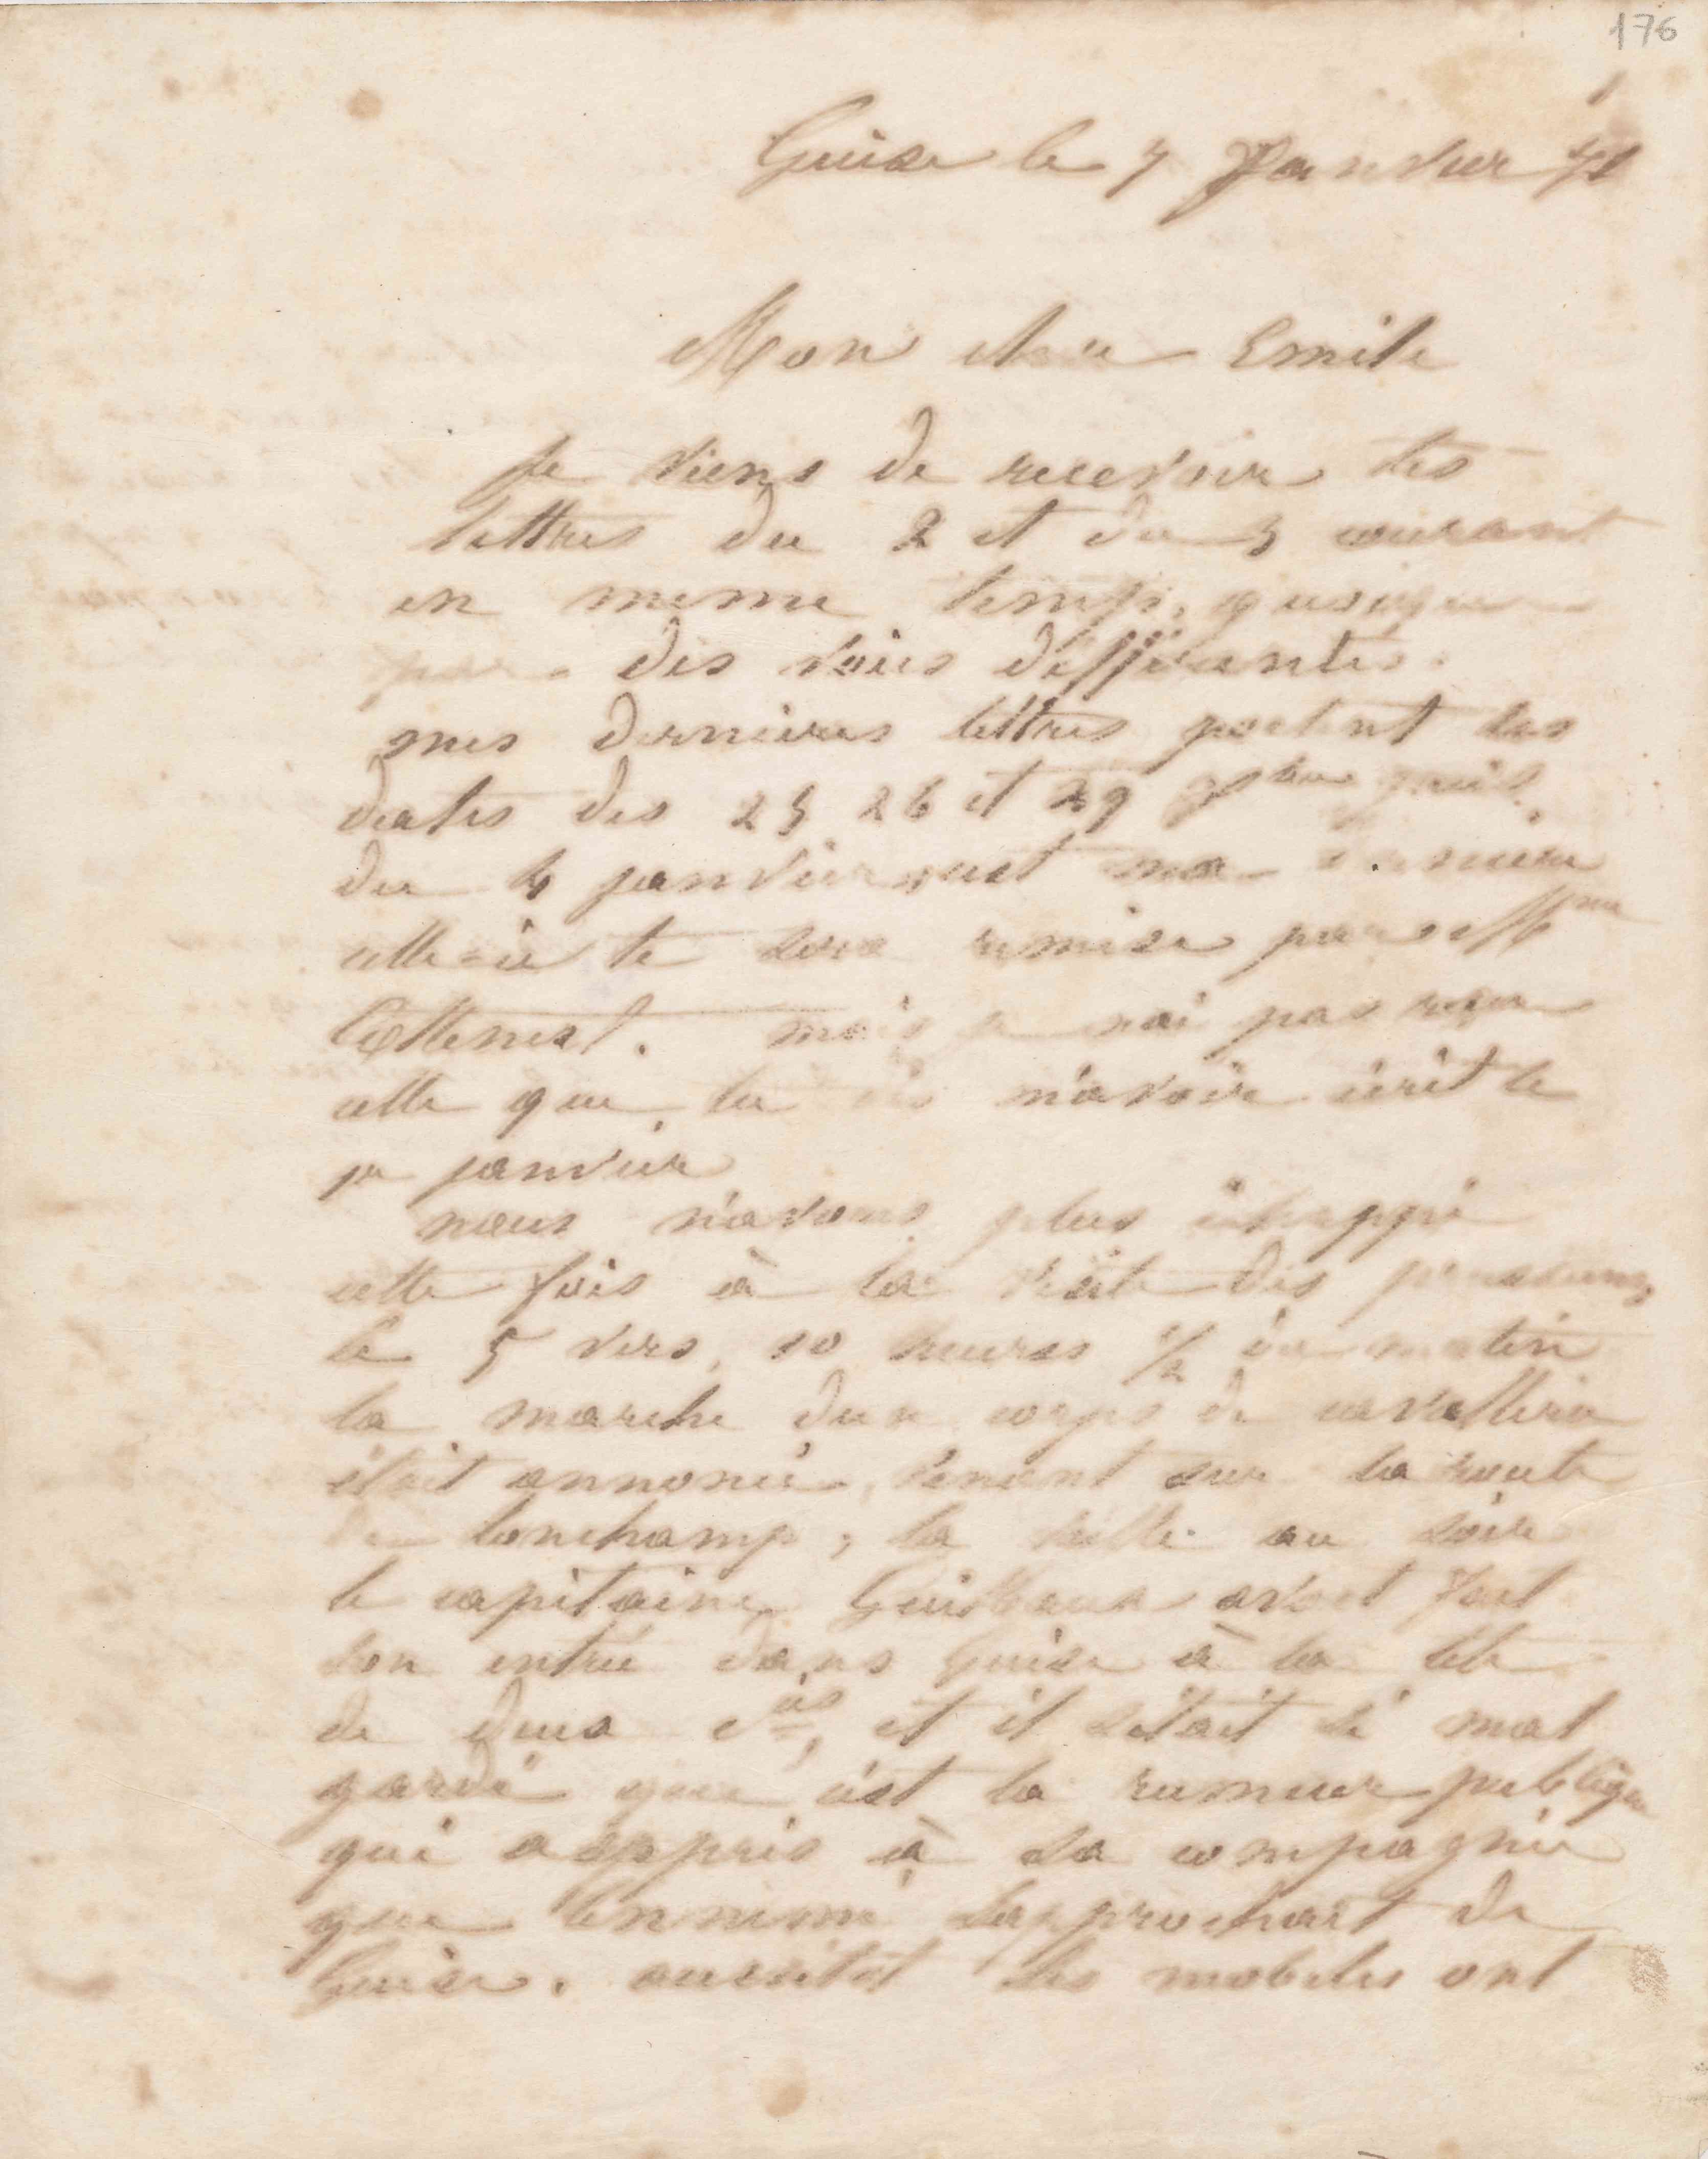 176
Guise le 7 Janvier 71
Mon cher Emile
Je viens de recevoir tes
lettres du 2 et du 3 courant
en meme temps, quoique
par des voies différentes.
mes dernieres lettres portent les
dates des 23 26 et 29 Xbre puis
du 4 janvier est ma derniere
celle-ci te sera remise par Mme
mais je nai pas reçu
celle que tu dis m'avoir écrit le
1er janvier
nous n'avons plus échappé
cette fois à la visite des prussiens,
le 5 vers 10 heures 1/2 du matin
la marche dun corps de cavallerie
était annoncé, venant sur la route
de Lonchamp, la veille au soir
le capitaine avait fait
son entrée dans Guise à la tête
de deux Cies, et il sétait si mal
gardé que cést la rumeur publique
qui a appris à sa compagnie
que lennemi sapprochait de
Guise. aussitot les mobiles ont